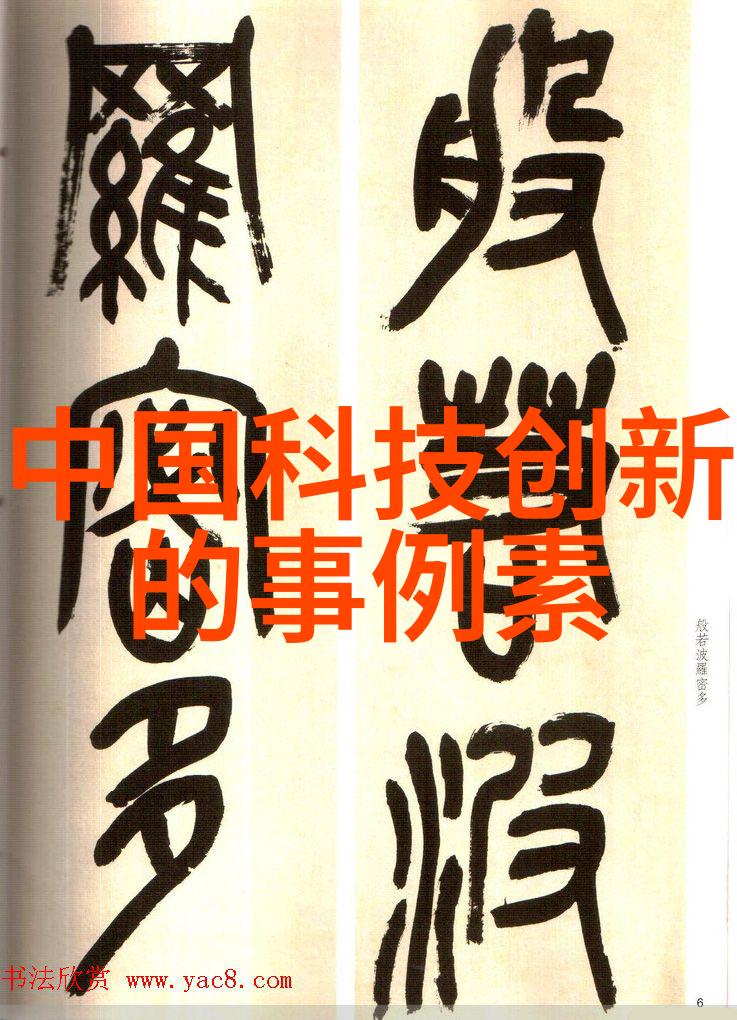 般若波
羅密多
中国科技创新
的事例素
般若波羅密多
书法欣赏 www.yac8.com
6